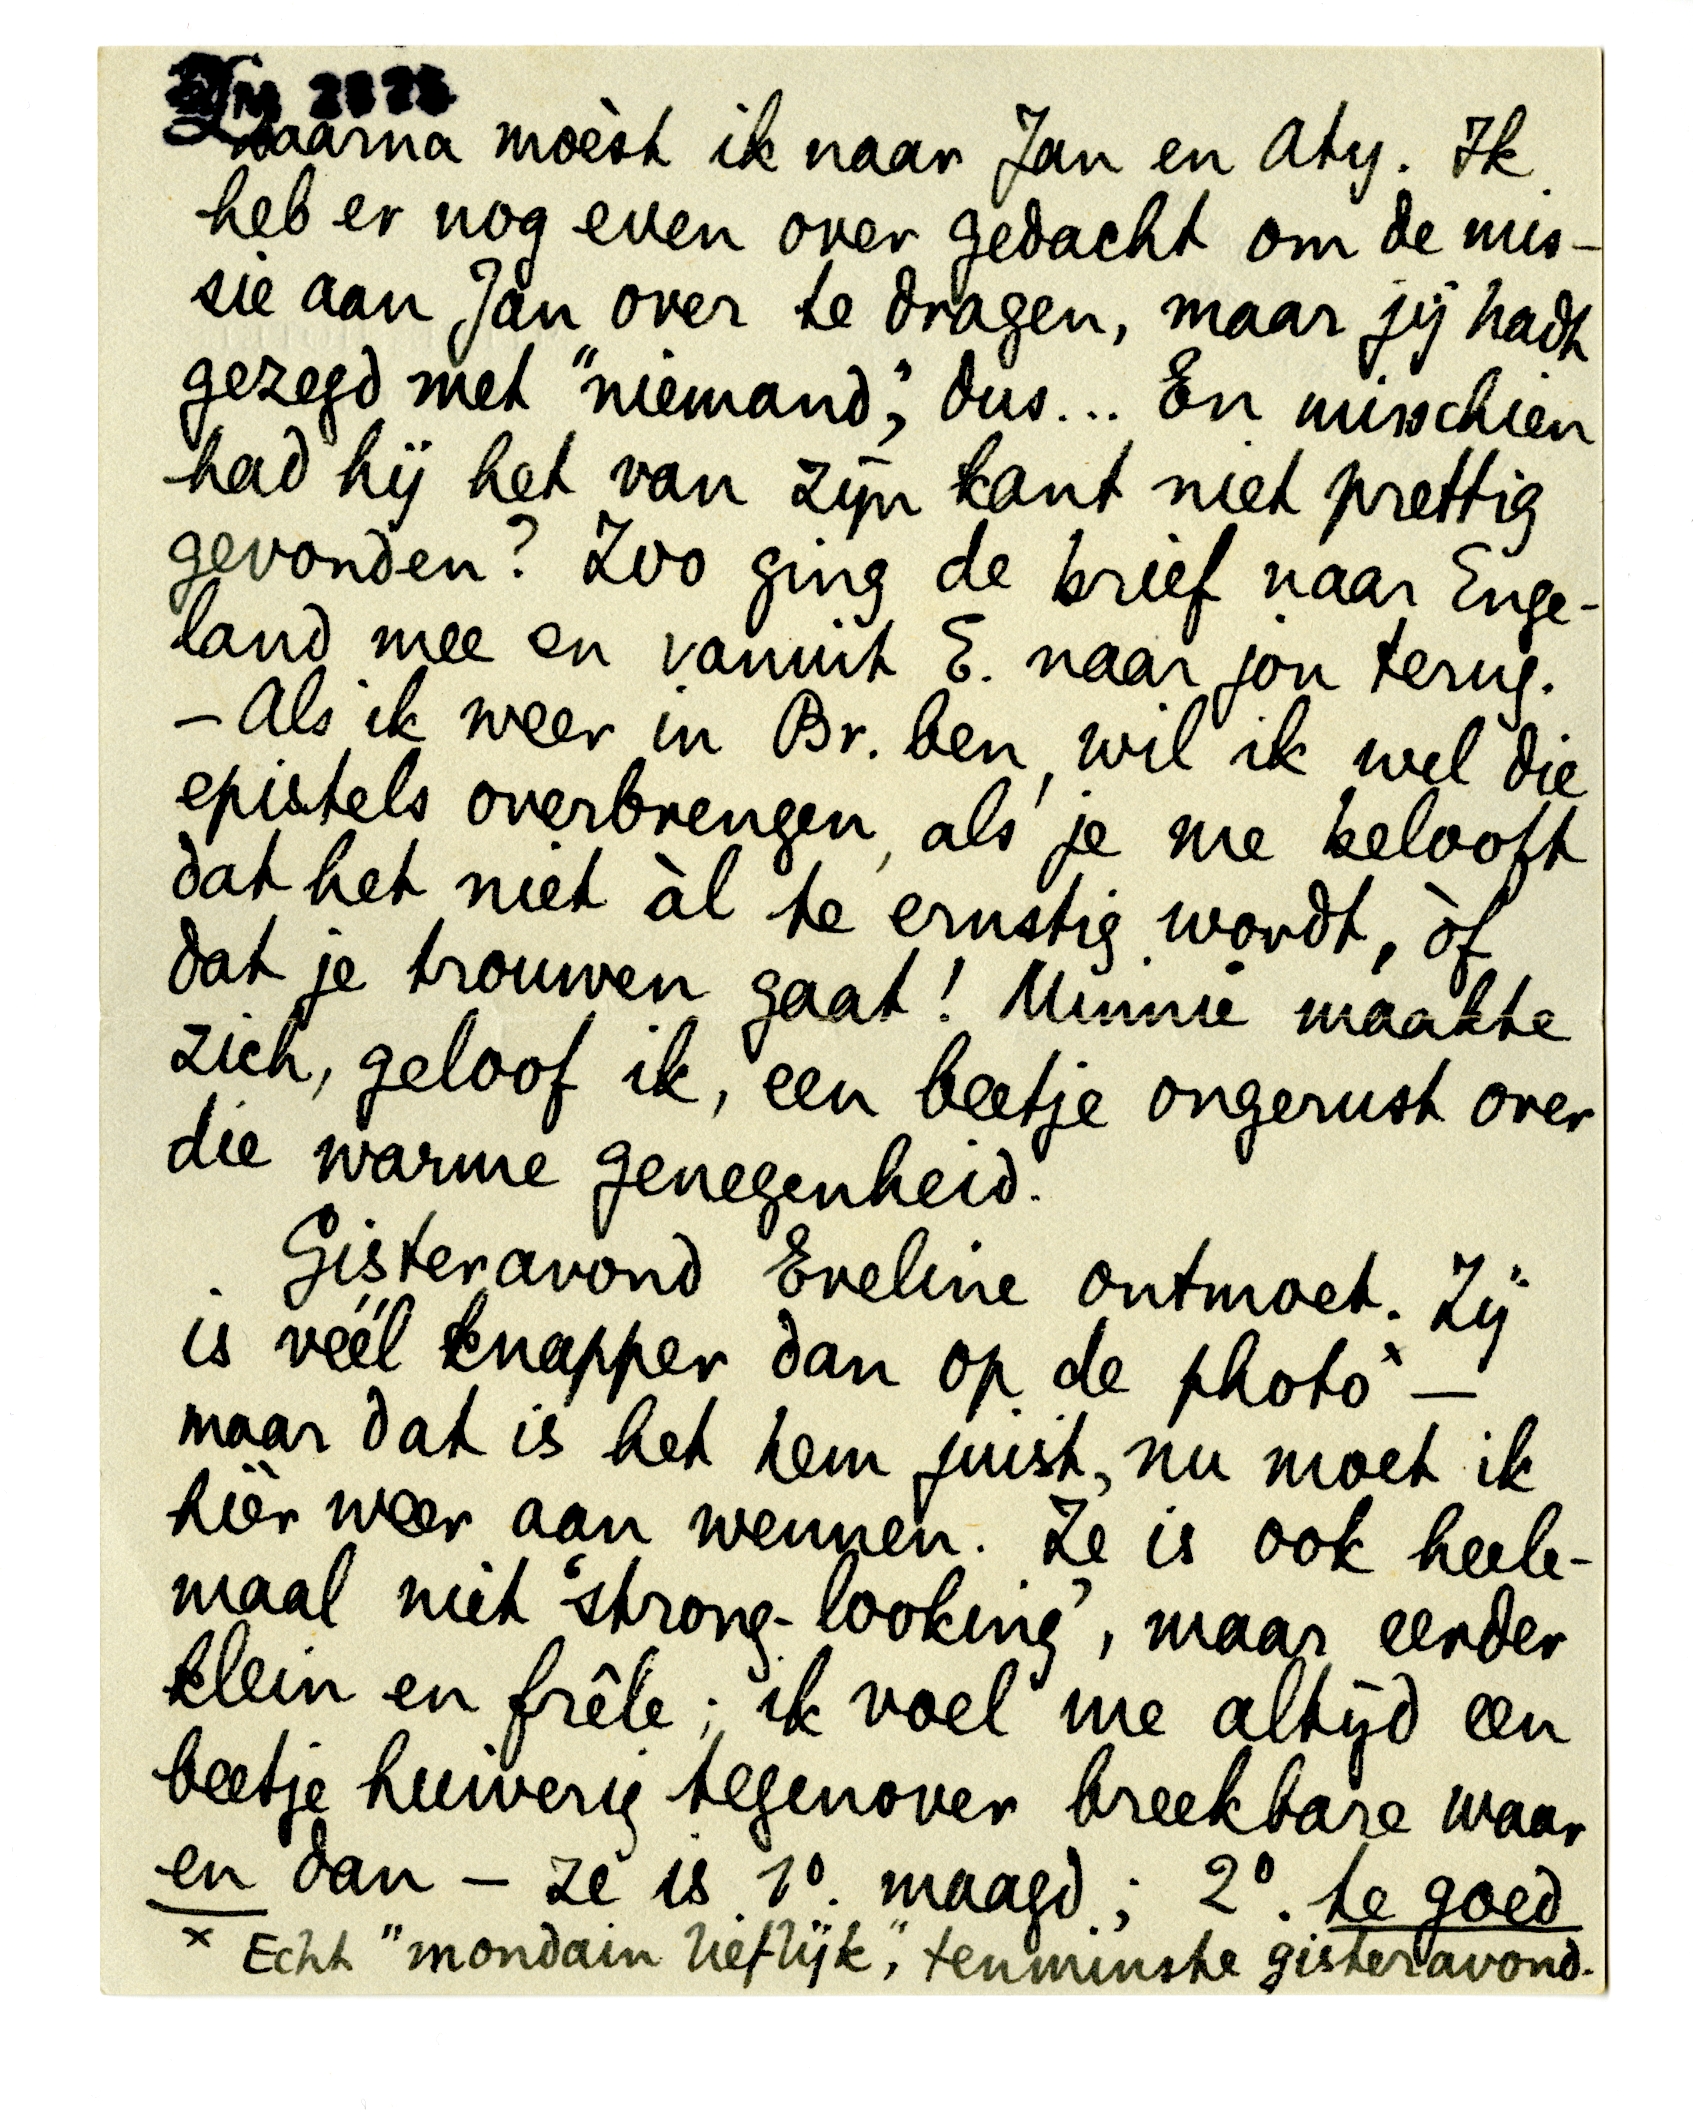 daarna moèst ik naar Jan en Aty. Ik
heb er nog even over gedacht om de mis-
sie aan Jan over te dragen, maar jij hadt
gezegd met "niemand", dus... En misschien
had hij het van zijn kant niet prettig
gevonden? Zoo ging de brief naar Enge-
land mee en vanuit E. naar jou terug.
- Als ik weer in Br. ben, wil ik wel die
epistels overbrengen, als je me belooft
dat het niet àl te ernstig wordt, òf
dat je trouwen gaat! Minnie maakte
zich, geloof ik, een beetje ongerust over
die warme genegenheid.
Gisteravond Eveline ontmoet. Zij
is véél knapper dan op de photo x —
maar dat is het hem juist, nu moet ik
hièr weer aan wennen. Ze is ook heele-
maal niet 'strong-looking', maar eerder
klein en frêle; ik voel me altijd een
beetje huiverig tegenover breekbare waar
en dan — ze is 1º. maagd; 2º. te goed
x Echt "mondain lieflijk", tenminste gisteravond.